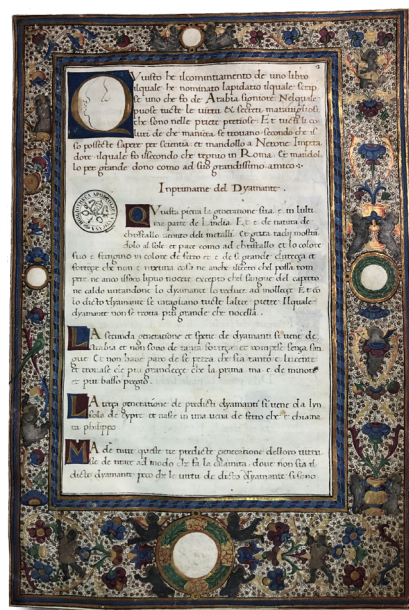 Questo he ilcominciamento de uno libro
ilquale he nominato lapidario ilquale scrip
se uno che fo de Arabia signiore Nelquale
puose tucte le uirtu et secreti marauigliosi
che sono nelle priete pretiose Et tucti li co
luri de che maniera se trouano secondo che is
so possecte sapere per scientia et mandollo a Nerone Impera
dore ilquale fo issecondo che regnio in Roma Et mandol
lo per grande dono como ad suo grandissimo amico
Inprimame del Dyamante
Questa pietra la generatione sua e in lulti
ma parte de Landia Et e de natura de
christallo de metalli Et gicta radij mostra
dolo al sole et pare como ad christallo et lo colore
suo e ferrigno in colore de ferro et e de si grande dureza et
forteze che non e neruna cosa ne anche altero che possa rom
pere ne anco issono lipuo nocere excepto chel sangue del caprino
ne caldo untandone lo dyamante lo reduce ad molleze Et co
lo dicto dyamante se uatagliano tucte laltre priete Ilquale
dyamante non se troua piu grande che nocella
La seconda generatione et spetie de dyamanti si uene de
Arabia et non sono de tanta forteza et rompese senza san
gue Et non have paro de sé peza che sia tanto e lucente
et trouase de piu grandecze che la prima ma e de minore
et piu basso pregio
La terza generatione de predicti dyamanti si uene da lyn
sola de Cypri et nasce in una uena de ferro che e chiama
ta philippo
Ma de tucte queste tre predicte generatione delloro uirtu
sie de tirare ad modo che fa la calamita doue non sia il
dicto dyamante pero che le uirtu de dicto dyamante si sono